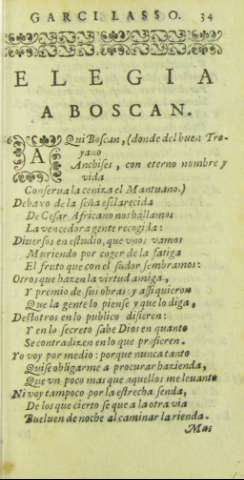 GARCI LASSO. 34
ELEGIA
A BOSCAN.
AQui Boscan, (donde del buen Tro-
yano
Anchises, con eterno nombre y
vida
Conserua la ceniza el Mantuano.)
Debaxo de la seña esclarecida
De Cesar Africano nos hallamos
La vencedora gente recogida:
Diuersos en estudio, que vnos vamos
Muriendo por coger de la fatiga
El fruto que con el sudor sembramos:
Otros que hazen la virtud amiga,
Y premio de sus obras, y assi quieren
Que la gente lo piense y que lo diga,
Destotros en lo publico difieren:
Y en lo secreto sabe Dios en quanto
Se contradizen en lo que profieren.
Yo voy por medio: porque nunca tanto
Quise obligarme a procurar hazienda,
Que vn poco mas que aquellos me leuanto
Ni voy tampoco por la estrecha senda,
De los que cierto se que a la otra via
Bueluen de noche al caminar la rienda.
Mas